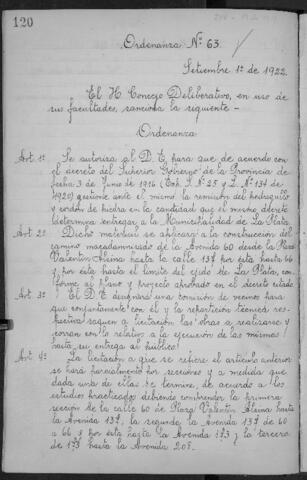 120
Ordenanza Nº 63.
Setiembre 1º de 1922.
El H Concejo Deliberativo, en uso de
sus facultades, sanciona la siguiente -
Ordenanza
Art 1º Se autoriza al D. E. para que de acuerdo con
el decreto del Superior Gobierno de la Provincia de
fecha 3 de Junio de 1916 (Exp. Nº 25 y Nº 134 de
1920) gestione ante el mismo la remisión del pedregullo
y cordón de piedra en la cantidad que el mismo decreto
determina entregar a la Municipalidad de La Plata.
Art 2º Dicho material se aplicará a la construcción del
camino macadamizado de la Avenida 60 desde la Plaza
Valentín Alsina hasta la calle 137 por esta hasta 66
y por esta hasta el límite del ejido de La Plata, con-
forme al plano y proyecto aprobado en el decreto citado
Art 3º El D. E. designará una comisión de vecinos para
que conjuntamente con él y la repartición técnica res-
pectiva saquen a licitación las obras a realizarse y
corran con lo relativo a la ejecución de las mismas
hasta su entrega al público.
Art 4º La licitación a que se refiere el artículo anterior
se hará parcialmente por secciones y a medida que
cada una de ellas se termine, de acuerdo a los
estudios practicados debiendo comprender la primera
sección de la calle 60 de Plaza Valentín Alsina hasta
la Avenida 137, la segunda la Avenida 137 de 60
a 66 y por esta hasta la Avenida 173 y la tercera
de 173 hasta la Avenida 207.